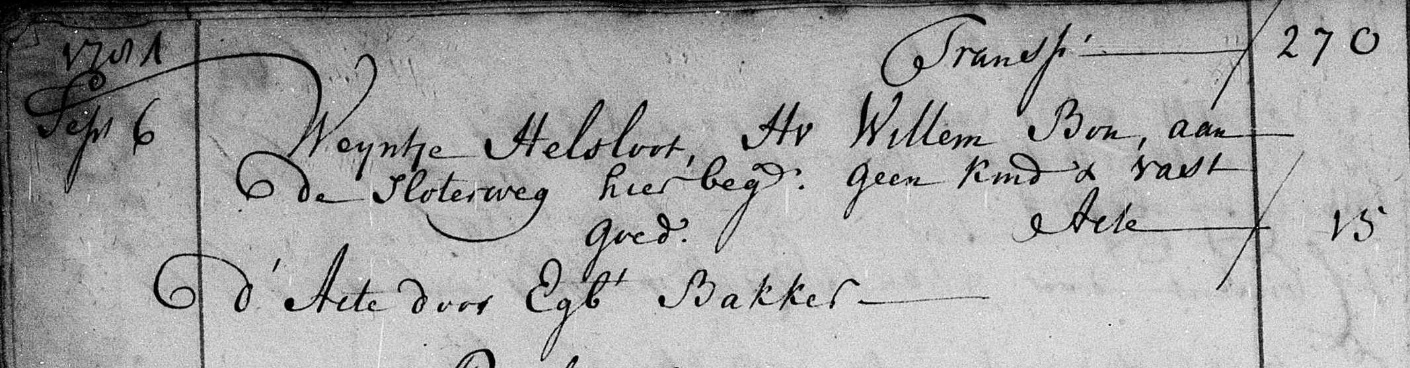 1781 Transp.t 270
Sept 6 Weyntje Helsloot, Hv Willem Bon, aan
de Sloterweg hier begr: geen kind & vast
goed. Acte 15
d' Acte door Egb.t Bakker